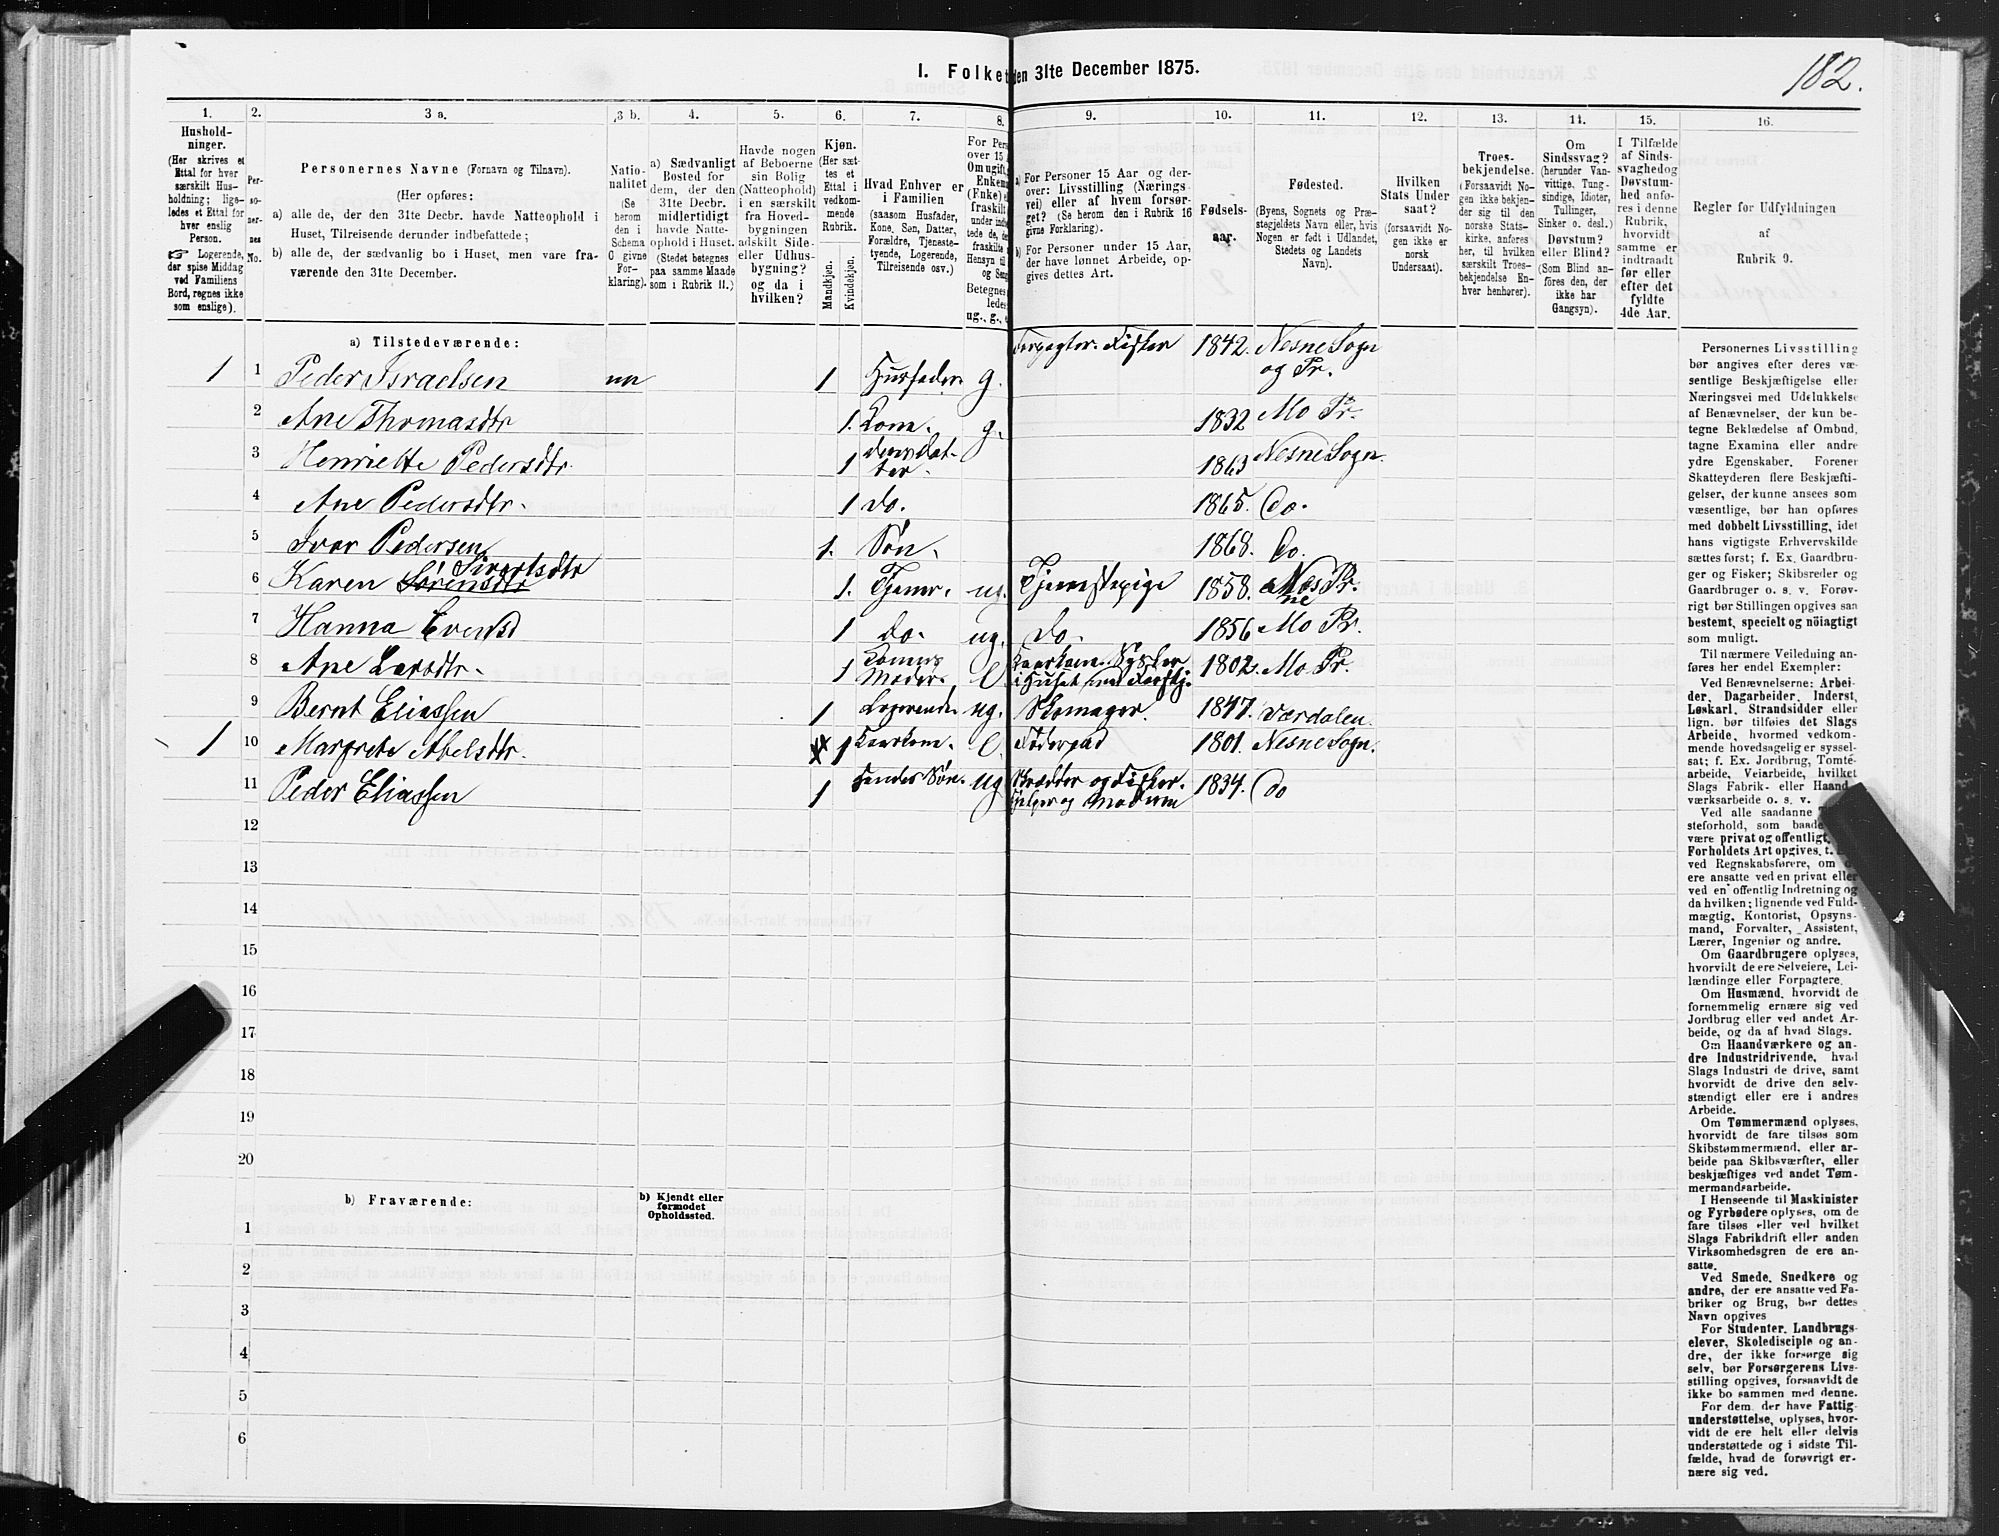 I. Folket den 31te December 1875.
182.
1.
Hushold-
ninger.
(Her skrives et
Ettal for hver
særskilt Hus-
holdning; lige-
ledes et Ettal for
hver enslig
Person.
Logerende,
der spise Middag
ved Familiens
Bord, regnes ikke
som enslige).
2.
Per-
so-
ner-
nes
No.
3 a.
Personernes Navne (Fornavn og Tilnavn).
(Her opføres:
a) alle de, der den 31te Decbr. havde Natteophold i
Huset, Tilreisende derunder indbefattede;
b) alle de, der sædvanlig bo i Huset, men vare fra-
værende den 31te December.
3 b.
Natio-
nalitet
(Se
herom
den i
Schema
O givne
For-
klaring).
4.
a) Sædvanligt
Bosted for
dem, der den
31te Decbr.
midlertidigt
havde Natte-
ophold i Huset.
(Stedet betegnes
paa samme Maade
som i Rubrik 11.)
5.
Havde nogen
af Beboerne
sin Bolig
(Natteophold)
i en særskilt
fra Hoved-
bygningen
adskilt Side-
eller Udhus-
bygning?
og da i
hvilken?
6.
Kjøn.
(Her sæt-
tes et
Ettal i
vedkom-
mende
Rubrik.
Mandkjøn.
Kvindekjøn.
7.
Hvad Enhver er
i Familien
(saasom Husfader,
Kone, Søn, Datter,
Forældre, Tjeneste-
tyende, Logerende,
Tilreisende osv.)
8.
For Per
over 15
Om ugift,
Enkem
(Enke)
fraskilt
under indbe
tede de, de
fraskilte
Hensyn til
og Seng
Betegnes
ledes
ug., g.,
9.
a) For Personer 15 Aar og der-
over: Livsstilling (Nærings-
vei) eller af hvem forsør-
get? (Se herom den i Rubrik 16
givne Forklaring).
b) For Personer under 15 Aar,
der have lønnet Arbeide, op-
gives dettes Art.
10.
Fødsels-
aar.
11.
Fødested.
(Byens, Sognets og Præ-
stegjeldets Navn eller, hvis
Nogen er født i Udlandet,
Stedets og Landets
Navn).
12.
Hvilken
Stats Under
saat?
(forsaavidt No-
gen ikke er
norsk
Undersaat).
13.
Troes-
bekjendelse.
(Forsaavidt No-
gen ikke bekjen-
der sig til den
norske Stats-
kirke, anføres
her, til hvilken
særskilt Troes-
bekjendelse En-
hver henhører).
14.
Om
Sindssvag?
(herunder Van-
vittige, Tung-
sindige, Idioter,
Tullinger,
Sinker o. desl.)
Døvstum?
eller Blind?
(Som Blind an-
føres den, der
ikke har
Gangsyn).
15.
I Tilfælde
af Sinds-
svaghed og
Døvstum-
hed anfø-
res i denne
Rubrik,
hvorvidt
samme er
indtraadt
før eller
efter det
fyldte
4de Aar.
16.
Regler for Udfyldningen
af
Rubrik 9.
a) Tilstedeværende:
1 1 Peder Israelsen nn 1 Husfader g. Forpagter. Fisker 1842. Nesne Sogn
og Pr.
2 Ane Thomasdtr 1. Kone. g. 1832 Mo Pr.
3 Henriette Pedersdtr 1 deres Dat-
ter. 1863 Nesne Sogn.
4 Ane Pedersdtr. 1 do. 1865. Do.
5 Ivar Pedersen 1. Søn. 1868. Do.
Sivertsdtr
6 Karen Sørensdtr 1. Tjener. ug. Tjenestepige 1858. Nesne Pr.
7 Hanna Evensd 1 do. ug. do. 1856 Mo Pr.
8 Ane Larsdtr. 1 Konens
Moder. e. 1802. Mo Pr.
9 Bernt Eliassen 1 Logerende ug. Skomager. 1847. Værdalen.
1 10 Margrete Abelsdtr. 1 Kaarkone. e. Føderaad 1801. Nesne Sogn.
11 Peder Eliassen 1 Hendes Søn. ug Skrædder og Fisker.
hjelper og Moderen 1834. Do
12
13
14
15
16
17
18
19
20
b) Fraværende:
b) Kjendt eller
formodet
Opholdssted.
1
2
3
4
5
6
Personernes Livsstilling
bør angives efter deres væ-
sentlige Beskjæftigelse eller
Næringsvei med Udelukkelse
af Benævnelser, der kun be-
tegne Beklædelse af Ombud,
tagne Examina eller andre
ydre Egenskaber. Forener
Skatteyderen flere Beskjæfti-
gelser, der kunne ansees som
væsentlige, bør han opføres
med dobbelt Livsstilling, idet
hans vigtigste Erhvervskilde
sættes først; f. Ex. Gaardbru-
ger og Fisker; Skibsreder og
Gaardbruger o. s. v. Forøv-
rigt bør Stillingen opgives saa
bestemt, specielt og nøiagtigt
som muligt.
Til nærmere Veiledning an-
føres her endel Exempler:
Ved Benævnelserne: Arbei-
der, Dagarbeider, Inderst,
Løskarl, Strandsidder eller
lign. bør tilføies det Slags
Arbeide, hvormed vedkom-
mende hovedsagelig er syssel-
sat; f. Ex. Jordbrug, Tomte-
arbeide, Veiarbeide, hvilket
Slags Fabrik- eller Haand-
værksarbeide o. s. v.
Ved alle saadanne
steforhold, som baade
være privat og offentligt,
Forholdets Art opgives, t.
ved Regnskabsførere, om
ere ansatte ved en privat eller
ved en offentlig Indretning og
da hvilken; lignende ved Fuld-
mægtig, Kontorist, Opsyns-
mand, Forvalter, Assistent,
Lærer, Ingeniør og andre.
Om Gaardbrugere oplyses,
hvorvidt de ere Selveiere, Lei-
lændinge eller Forpagtere.
Om Husmænd, hvorvidt de
fornemmelig ernære sig ved
Jordbrug eller ved andet Ar-
beide, og da af hvad Slags.
Om Haandværkere og an-
dre Industridrivende, hvad
Slags Industri de drive, samt
hvorvidt de drive den selv-
stændigt eller ere i andres
Arbeide.
Om Tømmermænd oplyses,
hvorvidt de fare tilsøs som
Skibstømmermænd, eller ar-
beide paa Skibsværfter, eller
beskjæftiges ved andet Tøm-
mermandsarbeide.
I Henseende til Maskinister
og Fyrbødere oplyses, om de
fare tilsøs eller ved hvilket
Slags Fabrikdrift eller anden
Virksomhedsgren de ere an-
satte.
Ved Smede, Snedkere og
andre, der ere ansatte ved Fa-
briker og Brug, bør dettes
Navn opgives
For Studenter, Landbrugs-
elever, Skoledisciple og an-
dre, der ikke forsørge sig
selv, bør Forsørgerens Livs-
stilling opgives, forsaavidt de
ikke bo sammen med denne.
For dem, der have Fattig-
understøttelse, oplyses, hvor-
vidt de ere helt eller delvis
understøttede og i sidste Til-
fælde, hvad de forøvrigt er-
nære sig ved.